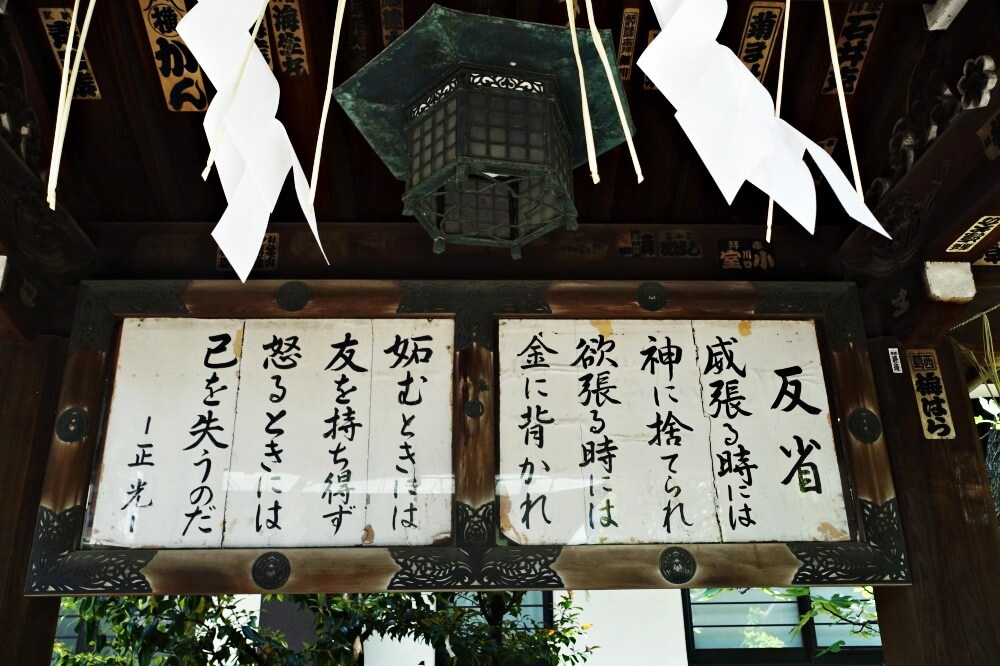 反省
威張る時には
神に捨てられ
欲張る時には
金に背かれ
妬むときには
友を持ち得ず
怒るときには
己を失うのだ
ー正光ー
かん
石井
小室
葛西
梅はら